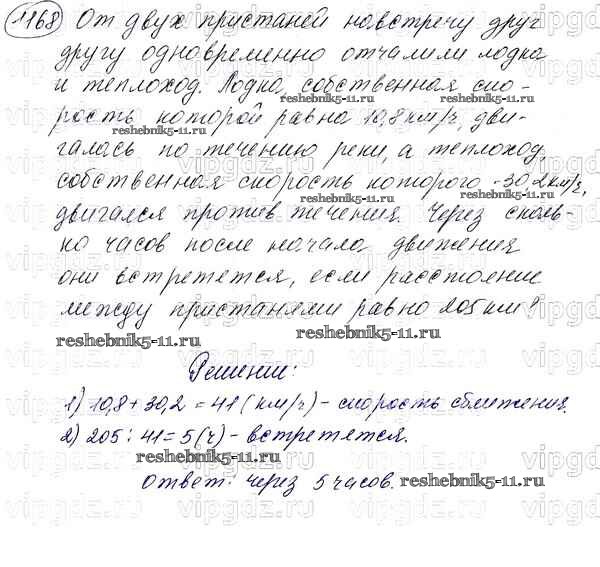 1168 От двух пристаней навстречу друг
другу одновременно отчалили лодка
и теплоход. Лодка, собственная ско-
reshebnik5-11.ru
рость которой равна 10,8 км/ч, дви-
reshebnik5-11.ru
галась по течению реки, а теплоход,
собственная скорость которого - 30,2 км/ч,
reshebnik5-11.ru
двигался против течения. Через сколь-
ко часов после начала движения
они встретятся, если расстояние
между пристанями равно 205 км?
reshebnik5-11.ru
reshebnik5-11.ru
Решение:
1) 10,8 + 30,2 = 41 (км/ч) - скорость сближения.
2) 205 : 41 = 5 (ч) - встретятся.
reshebnik5-11.ru
Ответ: через 5 часов.
reshebnik5-11.ru
vipgdz.ru